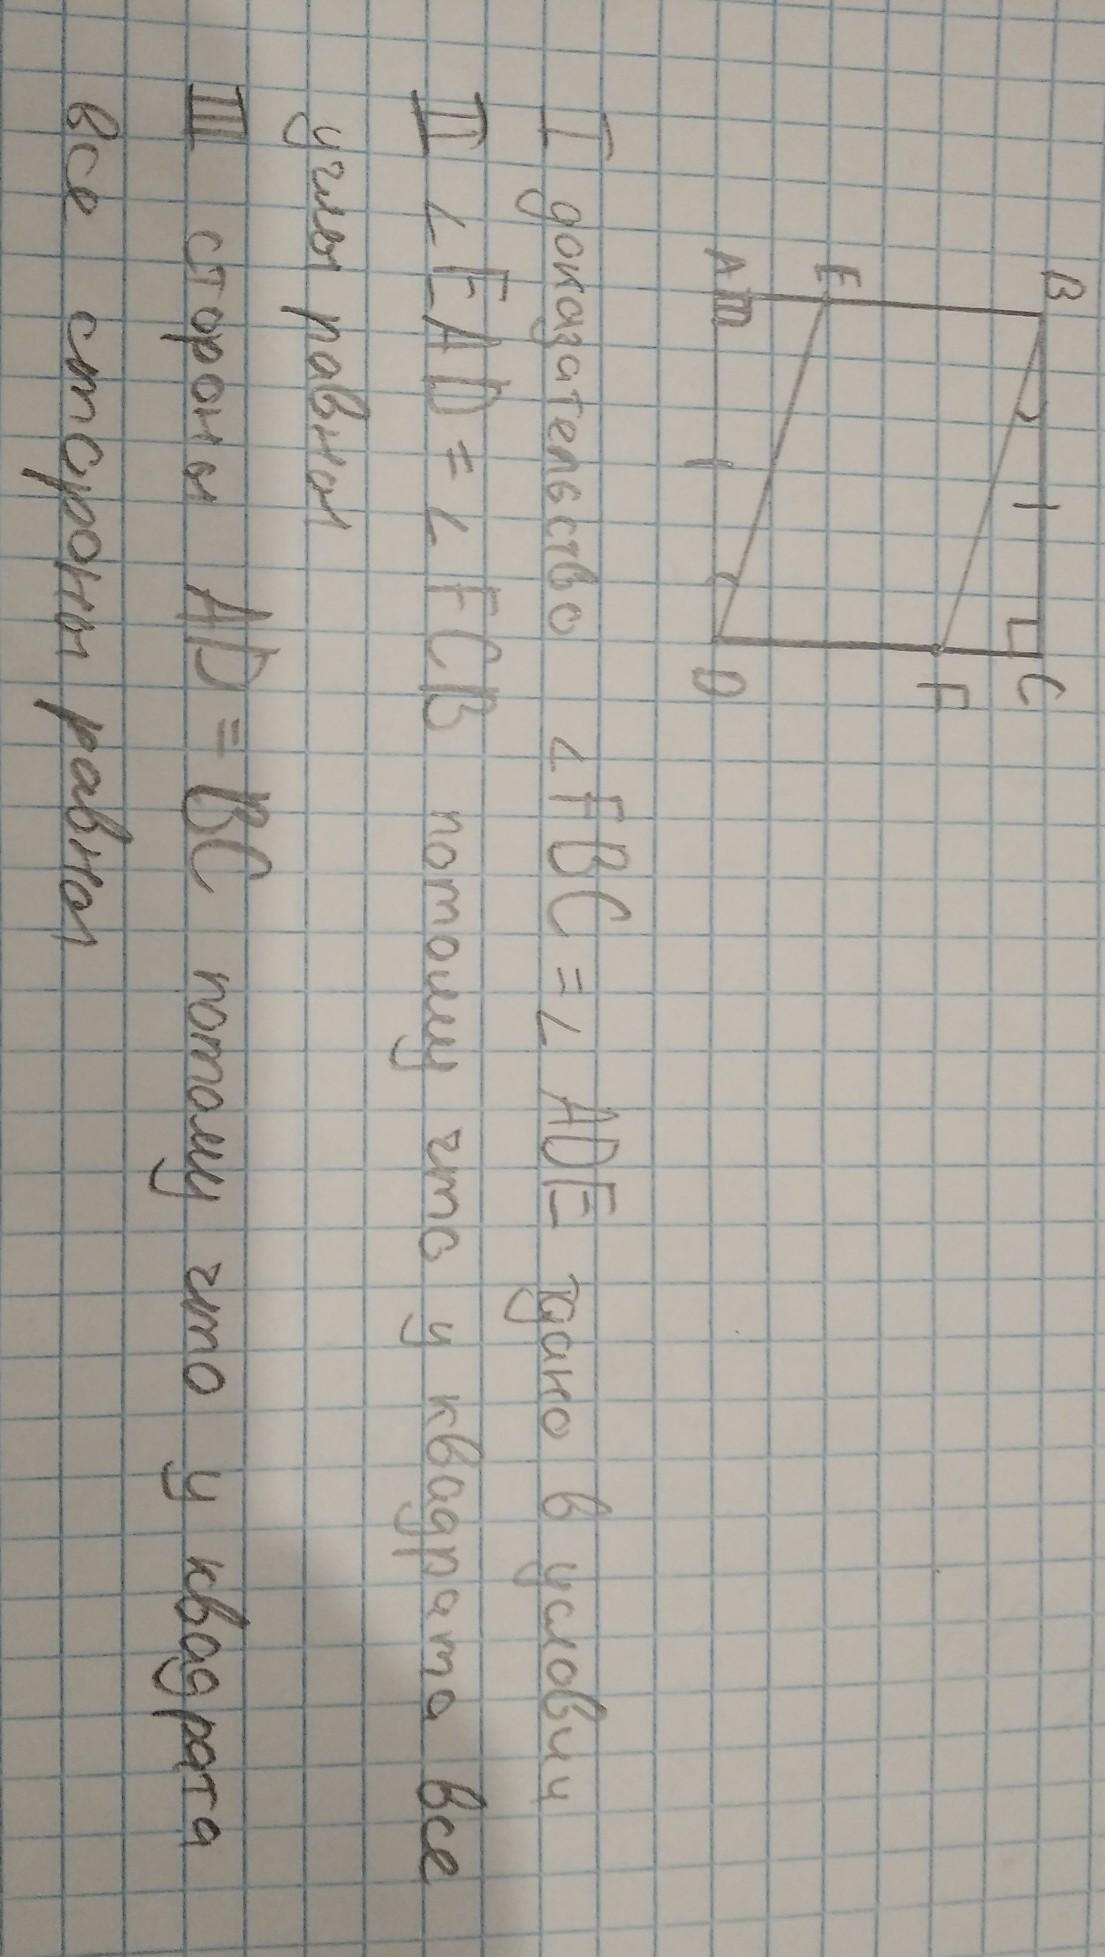 B C
E F
A D
I доказательство ∠FBC=∠ADE тдано в услови
II ∠EAD=∠FCB потому что у квадрата все
углы равны
III стороны AD=BC потому что у квадрата
все стороны равны